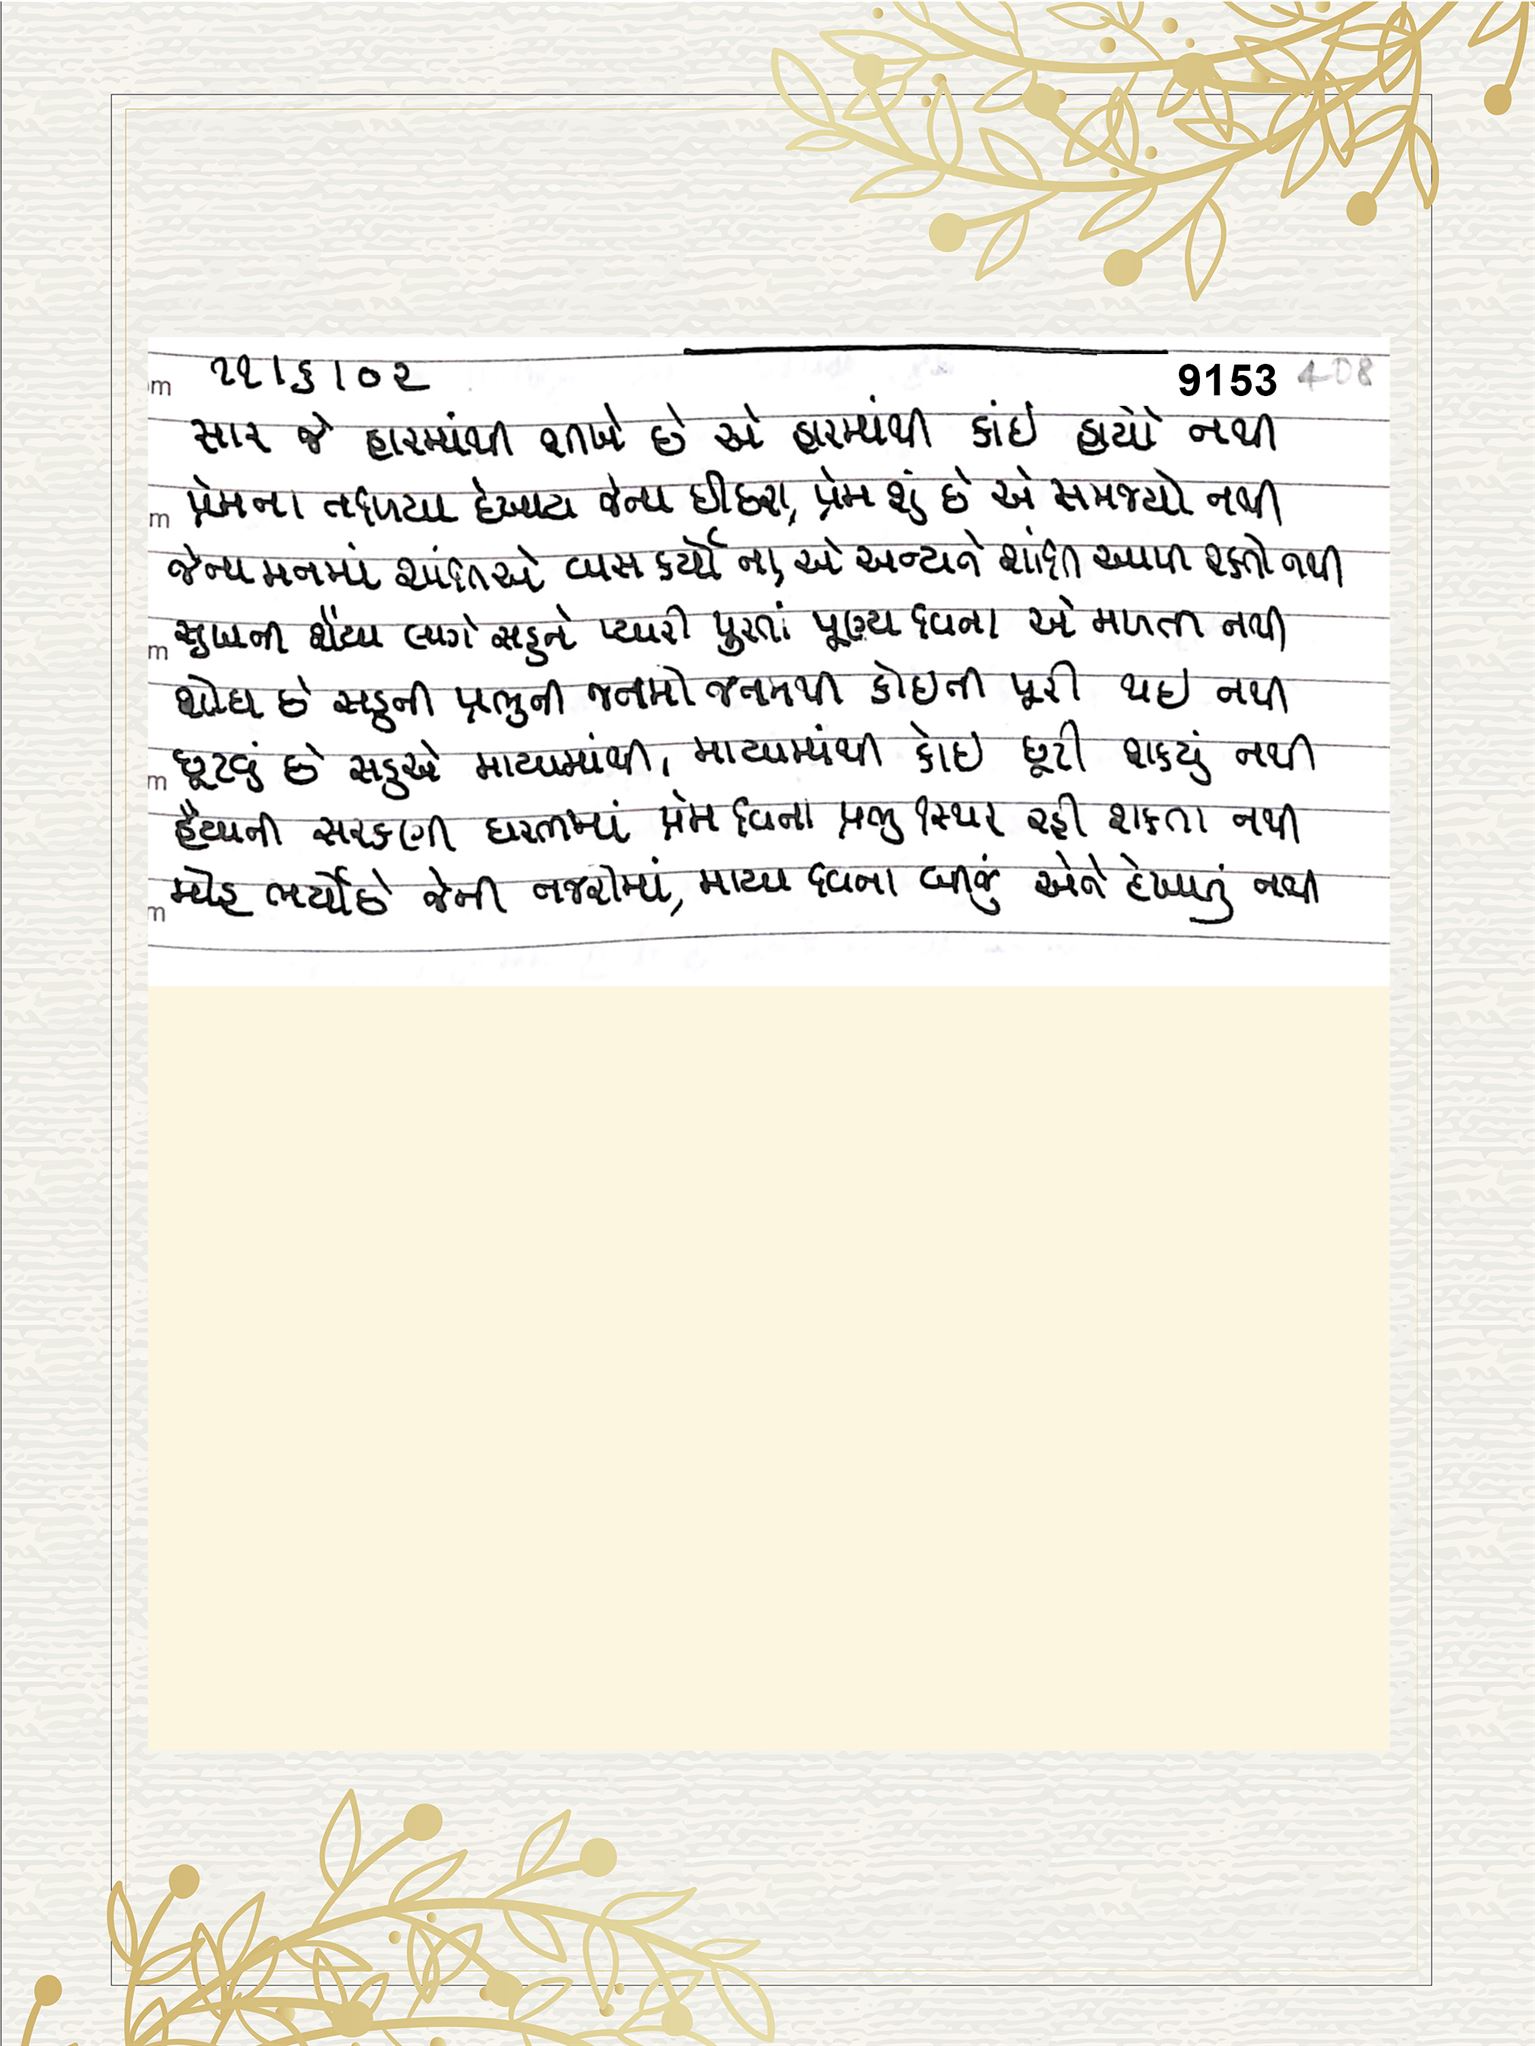 ૨૨।૬।૦૨ 9153 408
સાર જે હારમાંથી શીખે છે એ હારમાંથી કાંઈ હાર્યો નથી
પ્રેમના તળિયા દેખાય જેના છીછરા, પ્રેમ શું છે એ સમજ્યો નથી
જેના મનમાં શાંતિએ વાસ કર્યો ના, એ અન્યને શાંતિ આપી શક્તો નથી
સુખની શૈયા લાગે સહુને પ્યારી પુરતાં પૂણ્ય વિના એ મળતી નથી
શોધ છે સહુની પ્રભુની જનમો જનમથી કોઇની પૂરી થઇ નથી
છૂટવું છે સહુએ માયામાંથી, માયામાંથી કોઇ છૂટી શકયું નથી
હૈયાની સરકણી ધરતીમાં પ્રેમ વિના પ્રભુ સ્થિર રહી શકતા નથી
મોહ ભર્યો છે જેની નજરોમાં, માયા વિના બીજું એને દેખાતું નથી
m
m
m
m
m